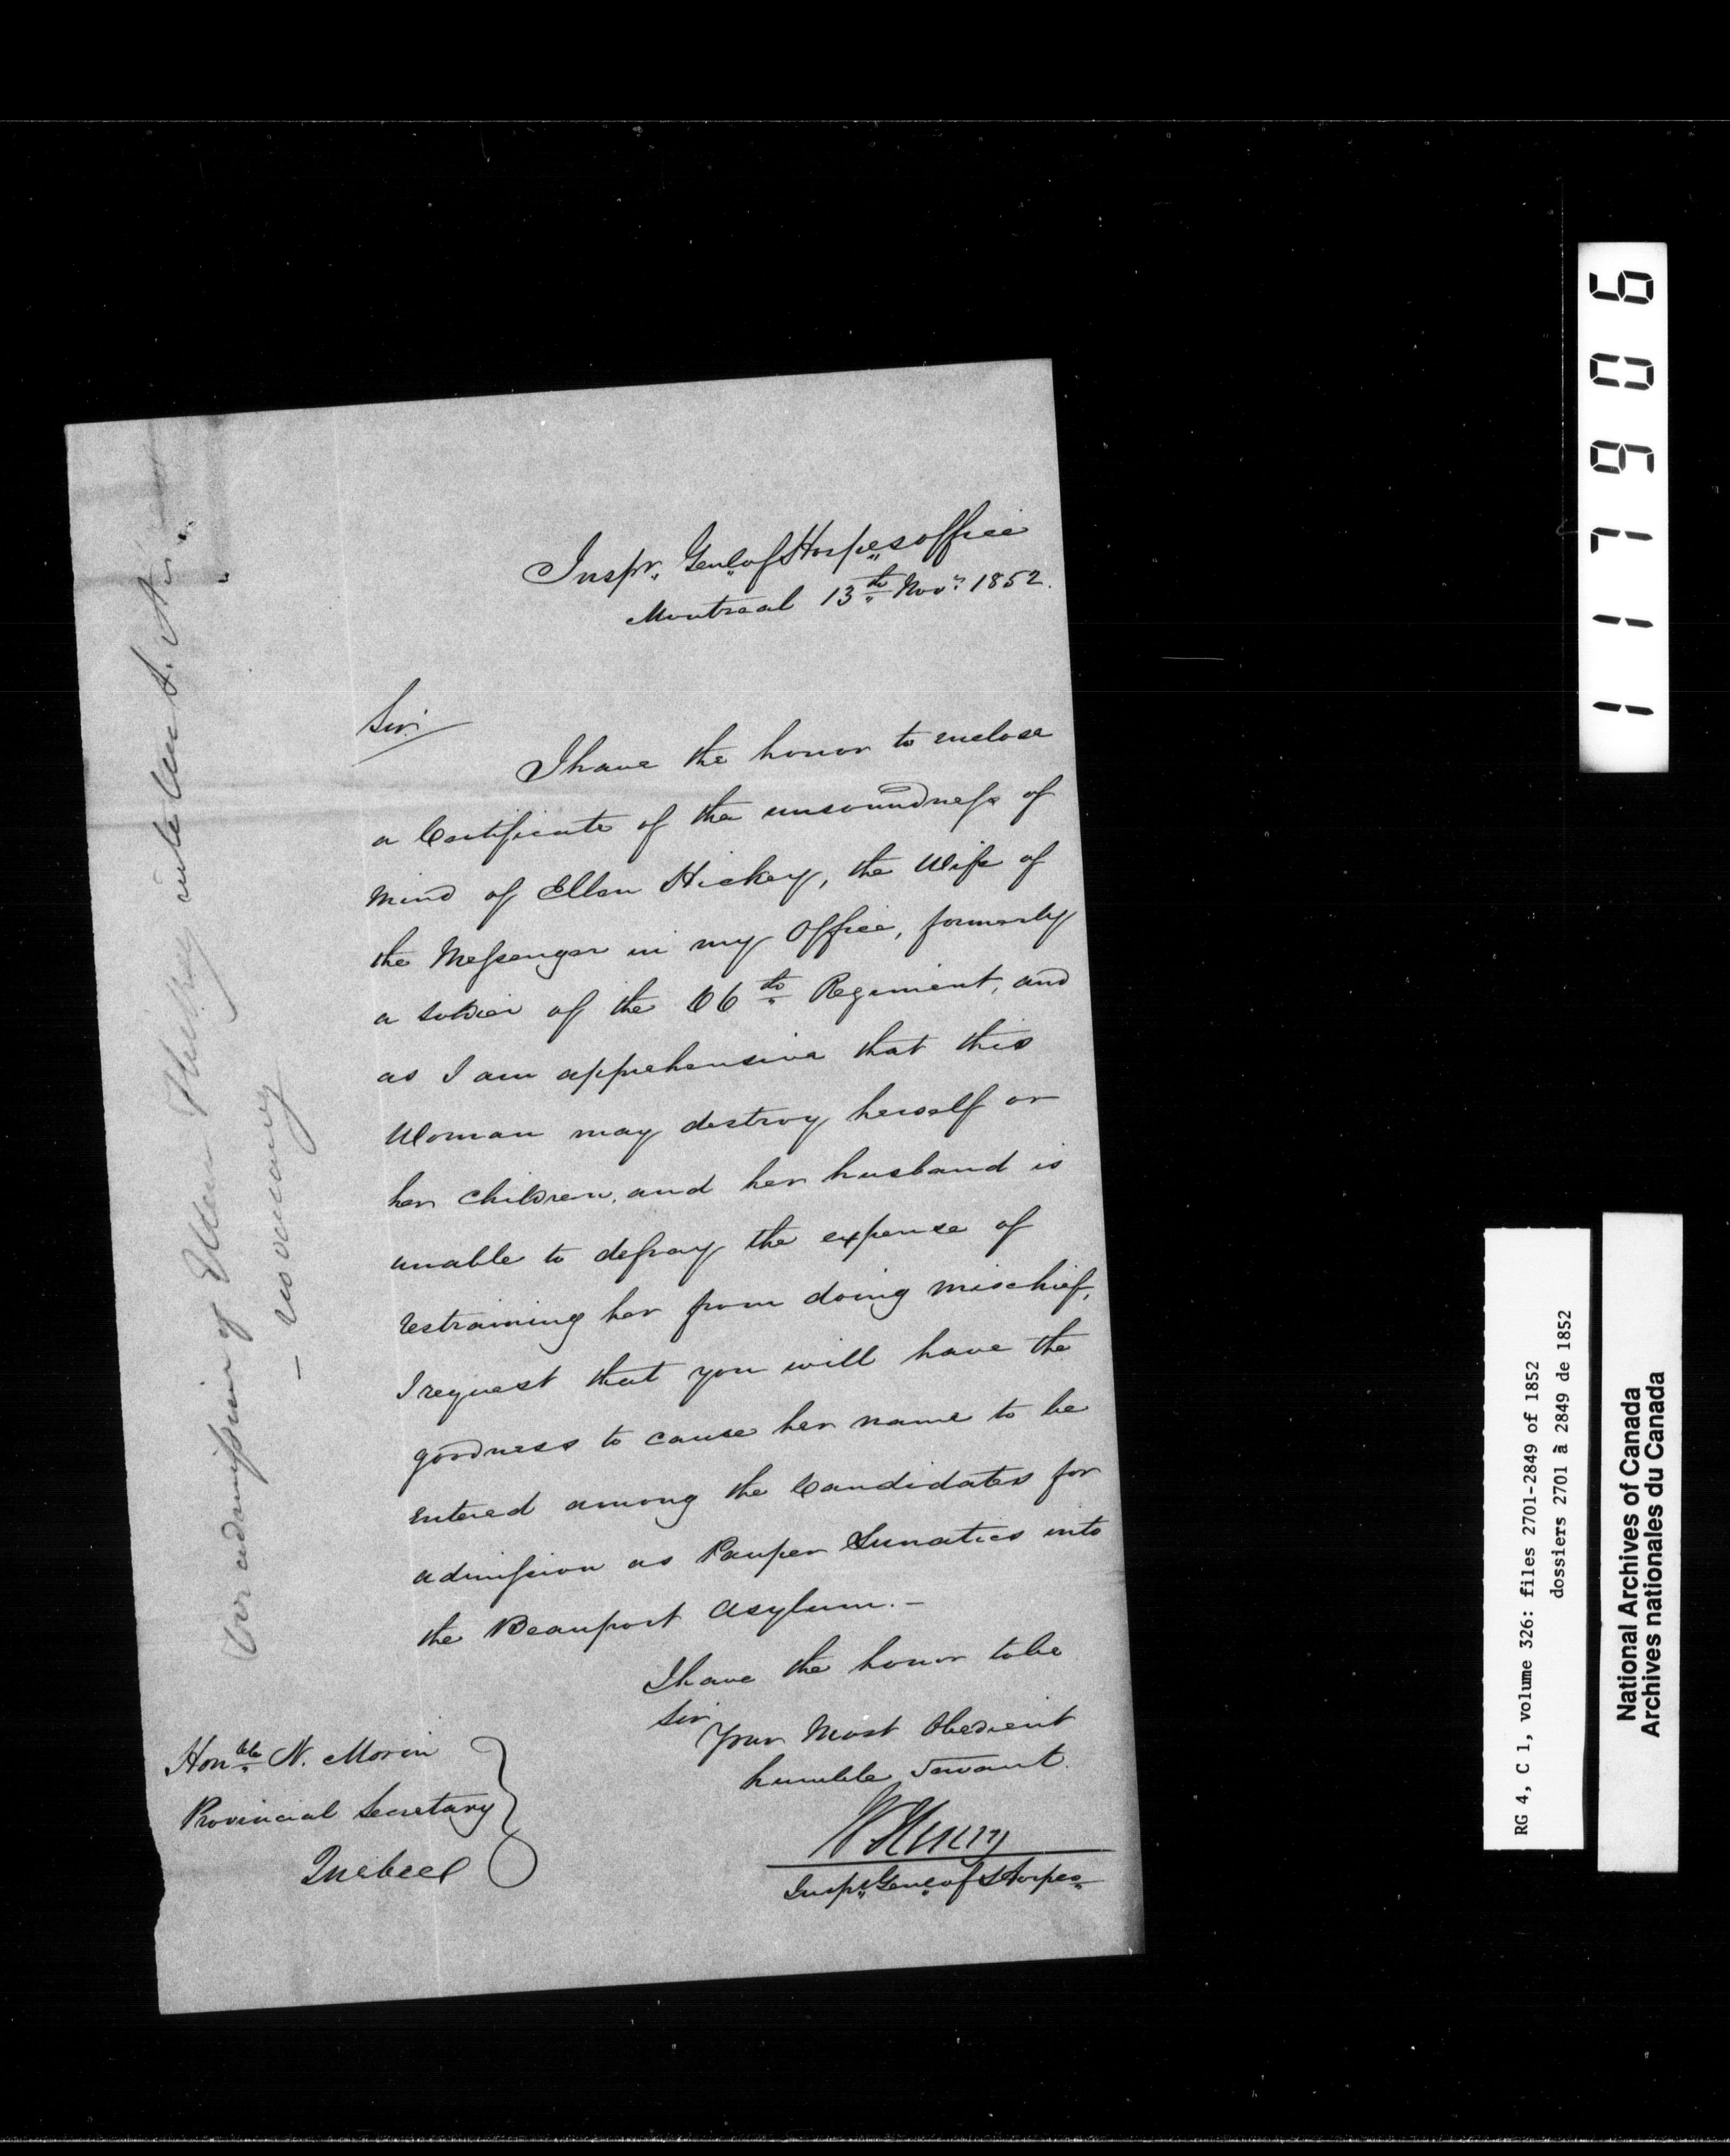 Inspr. Genl of Hospls office
Montreal 13th Novr. 1852.
Sir
I have the honor to enclose
a Certificate of the unsoundness of
mind of Ellen Hickey, the Wife of
the Messenger in my Office, formerly
a soldier of the 66th Regiment, and
as I am apprehensive that this
Woman may destroy herself or
her children, and her husband is
unable to defray the expense of
restraining her from doing mischief,
I request that you will have the
goodness to cause her name to be
entered among the Candidates for
admission as Pauper Lunatics into
the Beauport Asylum. -
I have the honor to be
Sir
Your Most Obedient
humble Servant.
W Henry
Inspr Genl of Hospls
Honble N. Morin
Provincial Secretary
Quebec
For admission of Ellen Hickey into Lun. A.
- no vacancy
117906
RG 4, C 1, volume 326: files 2701-2849 of 1852
dossiers 2701 à 2849 de 1852
National Archives of Canada
Archives nationales du Canada